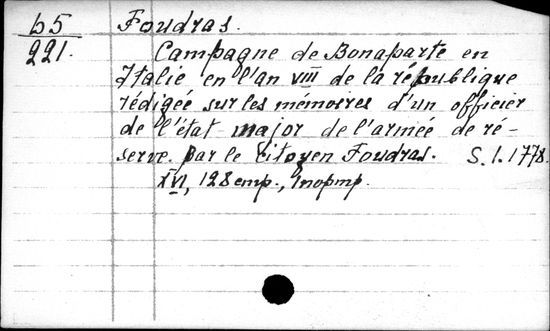 65
221.
Foudras.
Campagne de Bonaparte en
Italie en l'an VIII de la république
rédigée sur les mémoires d'un officier
de l'état-major de l'armée de ré-
serve. par le citoyen Foudras. S. l. 1778.
XVI, 128 стр., 1 портр.